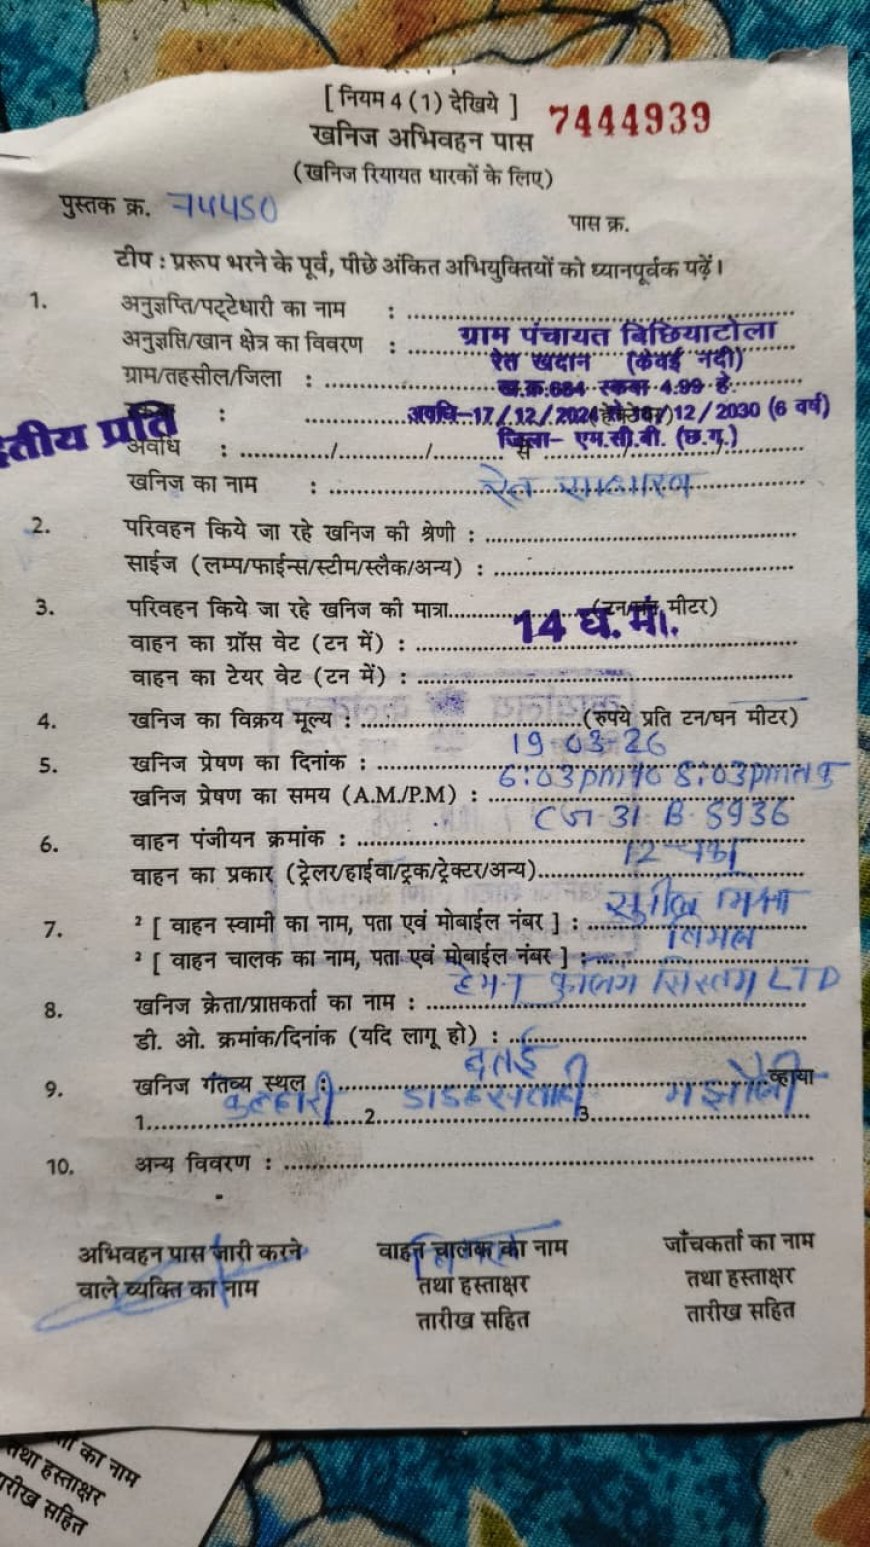 [ नियम 4 (1) देखिये ]
खनिज अभिवहन पास
7444939
(खनिज रियायत धारकों के लिए)
पुस्तक क्र. 74450
पास क्र.
टीप : प्ररूप भरने के पूर्व, पीछे अंकित अभियुक्तियों को ध्यानपूर्वक पढ़ें।
1. अनुज्ञप्ति/पट्टेधारी का नाम :
अनुज्ञप्ति/खान क्षेत्र का विवरण : ग्राम पंचायत बिछियाटोला
रेत खदान (केवई नदी)
ग्राम/तहसील/जिला :
ख.क्र.684 रकबा 4.99 हे.
: अवधि-17/12/2024 से 16/12/2030 (6 वर्ष)
द्वितीय प्रति
जिला- एम.सी.बी. (छ.ग.)
अवधि : ............/............/............ से ............/............/............
खनिज का नाम : रेत साधारण
2. परिवहन किये जा रहे खनिज की श्रेणी :
साईज (लम्प/फाईन्स/स्टीम/स्लैक/अन्य) :
3. परिवहन किये जा रहे खनिज की मात्रा (टन/घन मीटर)
14 घ.मी.
वाहन का ग्रॉस वेट (टन में) :
वाहन का टेयर वेट (टन में) :
4. खनिज का विक्रय मूल्य : (रुपये प्रति टन/घन मीटर)
5. खनिज प्रेषण का दिनांक : 19 03 26
खनिज प्रेषण का समय (A.M./P.M) : 6:03pm to 8:03pm तक
6. वाहन पंजीयन क्रमांक : CG 31 B 5936
वाहन का प्रकार (ट्रेलर/हाईवा/ट्रक/ट्रेक्टर/अन्य) 12 चका
7. ² [ वाहन स्वामी का नाम, पता एवं मोबाईल नंबर ] : सुनील मिश्रा
² [ वाहन चालक का नाम, पता एवं मोबाईल नंबर ] : विमल
8. खनिज क्रेता/प्राप्तकर्ता का नाम : सिस्टम LTD
डी. ओ. क्रमांक/दिनांक (यदि लागू हो) :
9. खनिज गंतव्य स्थल : व्हाया
1. 2 3 मझौली
10. अन्य विवरण :
अभिवहन पास जारी करने
वाले व्यक्ति का नाम
वाहन चालक का नाम
तथा हस्ताक्षर
तारीख सहित
जाँचकर्ता का नाम
तथा हस्ताक्षर
तारीख सहित
का नाम
तथा हस्ताक्षर
तारीख सहित